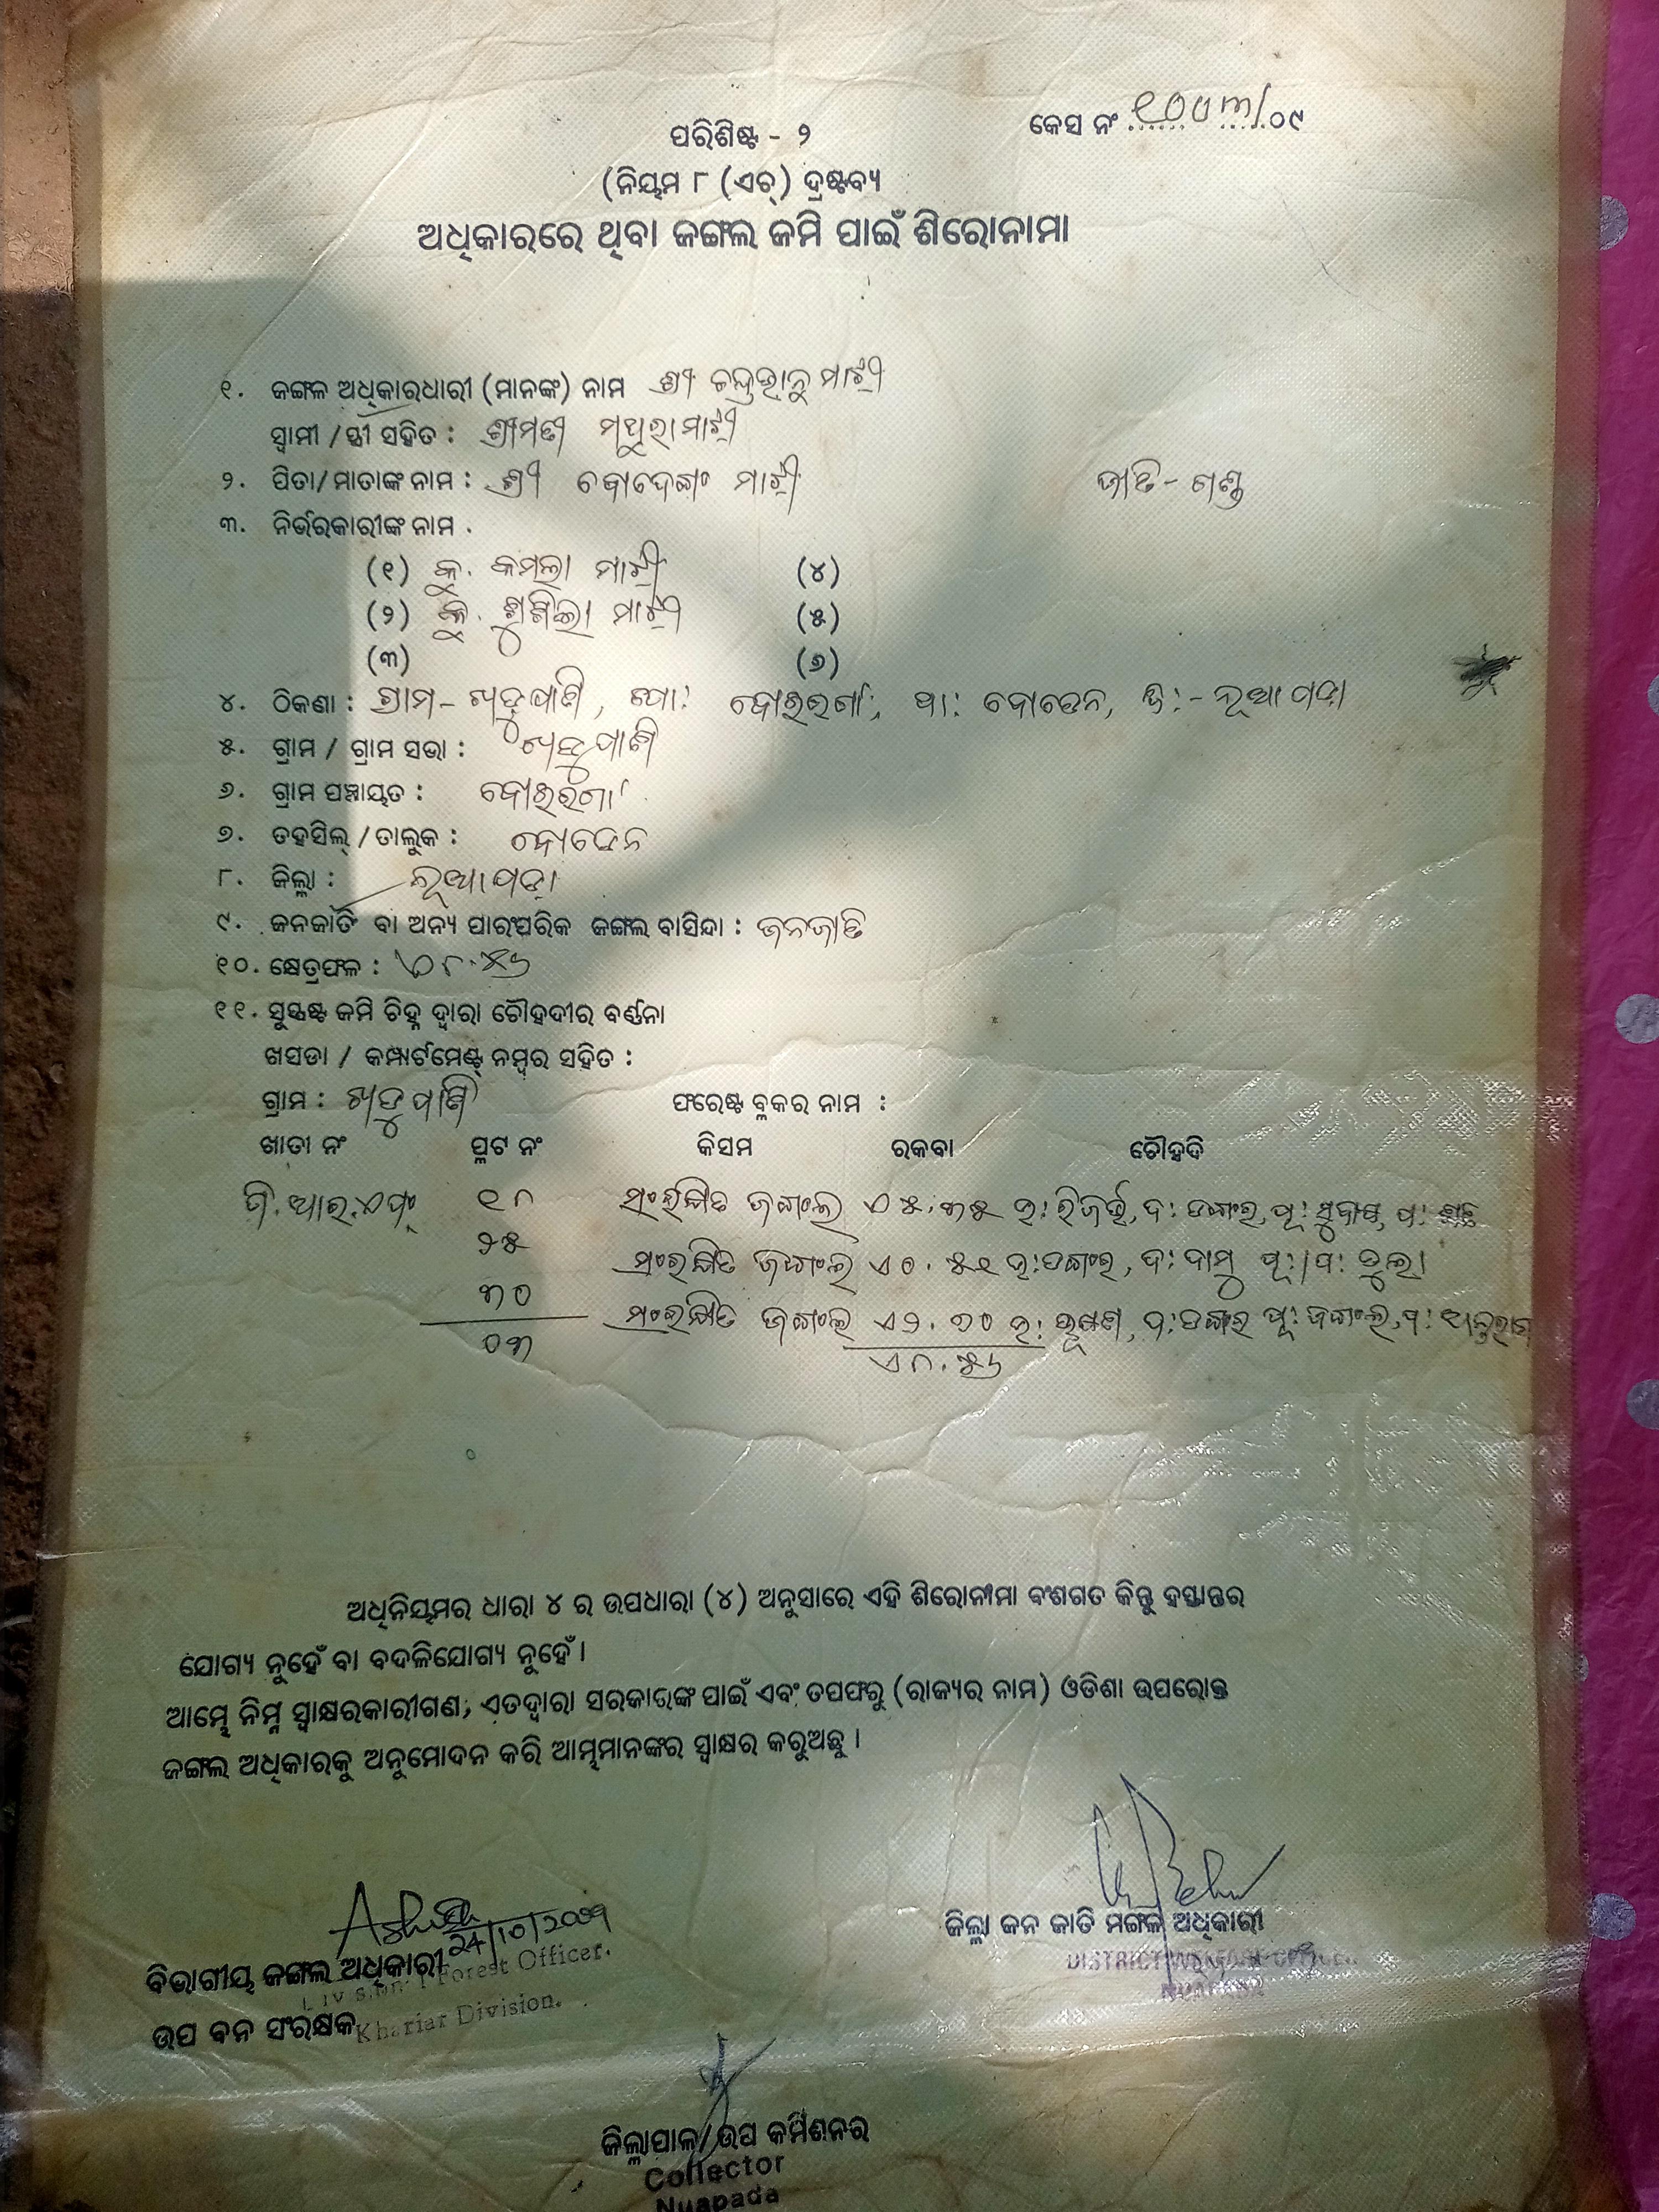 କେସ ନଂ ୧୦୦ ୩/୦୯
ପରିଶିଷ୍ଟ - ୨
(ନିୟମ ୮ (ଏଚ୍) ଦ୍ରଷ୍ଟବ୍ୟ
ଅଧିକାରରେ ଥିବା ଜଙ୍ଗଲ ଜମି ପାଇଁ ଶିରୋନାମା
୧. ଜଙ୍ଗଲ ଅଧିକାରଧାରୀ (ମାନଙ୍କ) ନାମ ଶ୍ରୀ ଚନ୍ଦ୍ରଭାନୁ ମାଝୀ
ସ୍ଵାମୀ / ସ୍ତ୍ରୀ ସହିତ : ଶ୍ରୀମତୀ ମଥୁରା ମାଝୀ
୨. ପିତା/ମାତାଙ୍କ ନାମ : ଶ୍ରୀ ମାଝୀ ଜାତି - ଗଣ୍ଡ
୩. ନିର୍ଭରକାରୀଙ୍କ ନାମ .
(୧) କୁ. କମଳା ମାଝୀ (୪)
(୨) କୁ. ମାଝୀ (୫)
(୩) (୬)
୪. ଠିକଣା : ଗ୍ରାମ - ଖଡୁପାଣି, ପୋ: ବୋଇରଗାଁ, ଥା: ବୋଡେନ, ଜି:- ନୂଆପଡ଼ା
୫. ଗ୍ରାମ / ଗ୍ରାମ ସଭା : ଖଡୁପାଣି
୬. ଗ୍ରାମ ପଞ୍ଚାୟତ : ବୋଇରଗାଁ
୭. ତହସିଲ୍ / ତାଲୁକ : ବୋଡେନ
୮. ଜିଲ୍ଲା : ନୂଆପଡ଼ା
୯. ଜନଜାତି ବା ଅନ୍ୟ ପାରଂପରିକ ଜଙ୍ଗଲ ବାସିନ୍ଦା : ଜନଜାତି
୧୦. କ୍ଷେତ୍ରଫଳ : ଏ ୮.୫୬
୧୧. ସୁସ୍ପଷ୍ଟ ଜମି ଚିହ୍ନ ଦ୍ଵାରା ଚୌହଦୀର ବର୍ଣ୍ଣନା
ଖସଡା / କମ୍ପାର୍ଟମେଣ୍ଟ୍ ନମ୍ବର ସହିତ :
ଗ୍ରାମ : ଖଡୁପାଣି ଫରେଷ୍ଟ ବ୍ଲକର ନାମ :
ଖାତା ନଂ ପ୍ଲଟ ନଂ କିସମ ରକବା ଚୌହଦି
ଡି.ଆର.ଏଫ୍ ୧୮ ସଂରକ୍ଷିତ ଜଙ୍ଗଲ ଏ ୫.୩୫ ଉ: ରିଜର୍ଭ, ଦ: ଡଙ୍ଗର, ପୂ: ସୁବାଷ, ପ:
୨୫ ସଂରକ୍ଷିତ ଜଙ୍ଗଲ ଏ ୦.୫୧ ଉ: ଡଙ୍ଗର, ଦ: ଦାମୁ ପୂ:/ପ: ଡୁଲା
୩୦ ସଂରକ୍ଷିତ ଜଙ୍ଗଲ ଏ ୨.୭୦ ଉ: ଭୂଷଣ, ଦ: ଡଙ୍ଗର ପୂ: ଜଙ୍ଗଲ, ପ:
୦୩ ଏ ୮.୫୬
ଅଧିନିୟମର ଧାରା ୪ ର ଉପଧାରା (୪) ଅନୁସାରେ ଏହି ଶିରୋନାମା ବଂଶଗତ କିନ୍ତୁ ହସ୍ତାନ୍ତର
ଯୋଗ୍ୟ ନୁହେଁ ବା ବଦଳିଯୋଗ୍ୟ ନୁହେଁ ।
ଆମ୍ଭେ ନିମ୍ନ ସ୍ଵାକ୍ଷରକାରୀଗଣ, ଏତଦ୍ଵାରା ସରକାରଙ୍କ ପାଇଁ ଏବଂ ତପଫରୁ (ରାଜ୍ୟର ନାମ) ଓଡିଶା ଉପରୋକ୍ତ
ଜଙ୍ଗଲ ଅଧିକାରକୁ ଅନୁମୋଦନ କରି ଆମ୍ଭମାନଙ୍କର ସ୍ଵାକ୍ଷର କରୁଅଛୁ ।
24/10/2009
ବିଭାଗୀୟ ଜଙ୍ଗଲ ଅଧିକାରୀ
Divisional Forest Officer.
ଉପ ବନ ସଂରକ୍ଷକ
Khariar Division.
ଜିଲ୍ଲା ଜନ ଜାତି ମଙ୍ଗଳ ଅଧିକାରୀ
DISTRICT WELFARE OFFICER
NUAPADA
ଜିଲ୍ଲାପାଳ/ଉପ କମିଶନର
Collector
Nuapada